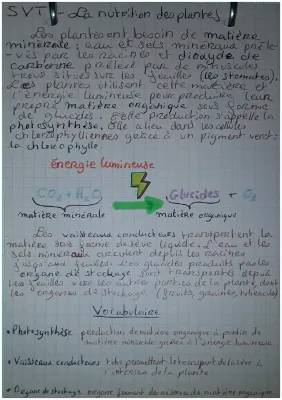 SVT - La nutrition des plantes.
Les plantes ont besoin de matière
minérale : eau et sels minéraux préle-
-vés par les racines et dioxyde de
carbone prélevé par de minuscules
trous situés sur les feuilles (les stomates).
Les plantes utilisent cette matière et
l'énergie lumineuse pour produire leur
propre matière organique sous forme
de glucides. Cette production s'appelle la
photosynthèse. Elle a lieu dans les cellules
chlorophylliennes grâce à un pigment vert :
la chlorophylle.
Énergie lumineuse
CO2 + H2O Glucides + O2
matière minérale matière organique
Les vaisseaux conducteurs transportent la
matière sous forme de sève liquide. L'eau et les
sels minéraux circulent depuis les racines
jusqu'aux feuilles. Les glucides produits par les
organe de stockage sont transportés depuis
les feuilles vers les autres parties de la plante, dont
les organes de stockage (fruits, graines, tubercules)
Vocabulaire
• Photosynthèse production de matière organique à partir de
matière minérale grâce à l'énergie lumineuse
• Vaisseaux conducteurs tube permettant le transport de la sève à
l'intérieur de la plante
• Organe de stockage organe formant des réserves de matière organique